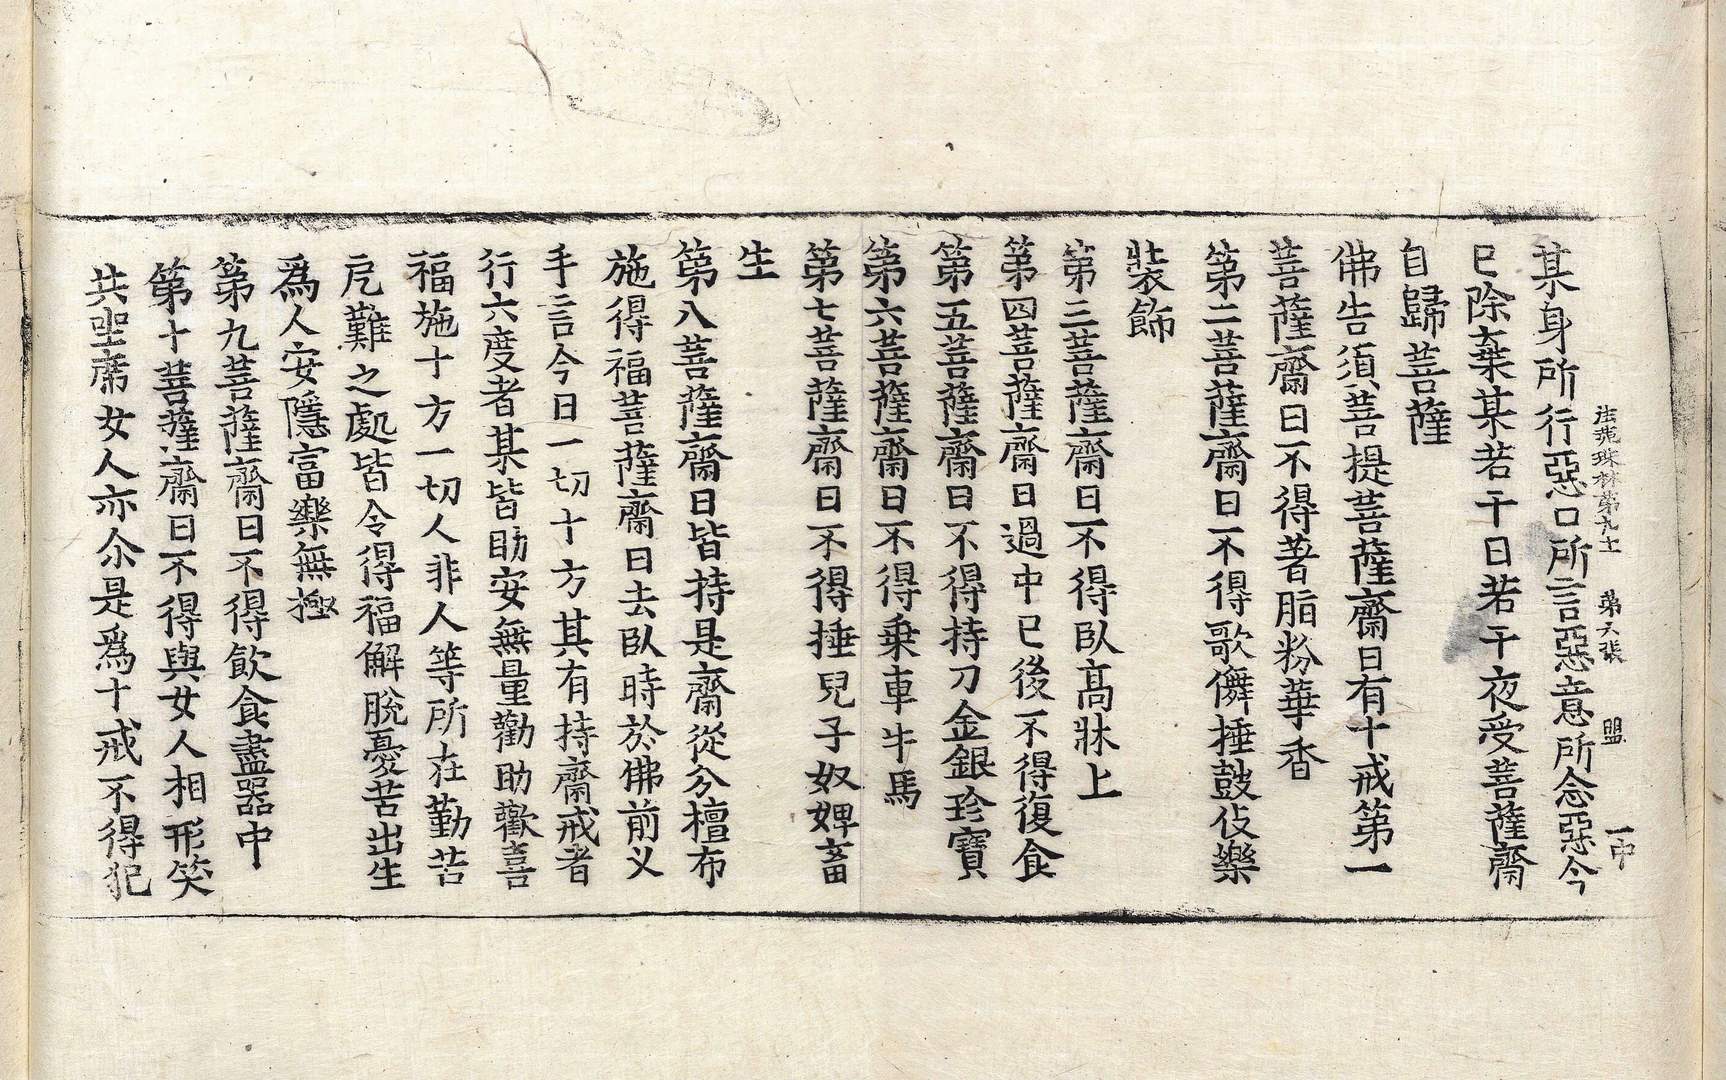 法苑珠林第九十 第六張 盟
一中
某身所行惡口所言惡意所念惡今
已除棄某若干日若干夜受菩薩齋
自歸菩薩
佛告須菩提菩薩齋日有十戒第一
菩薩齋日不得著脂粉華香
第二菩薩齋日不得歌儛捶鼓伎樂
莊飾
第三菩薩齋日不得臥高牀上
第四菩薩齋日過中已後不得復食
第五菩薩齋日不得持刀金銀珍寶
第六菩薩齋日不得乗車牛馬
第七菩薩齋日不得捶兒子奴婢畜
生
第八菩薩齋日皆持是齋從分檀布
施得福菩薩齋日去臥時於佛前叉
手言今日一切十方其有持齋戒者
行六度者某皆助安無量勸助歡喜
福施十方一切人非人等所在勤苦
厄難之處皆令得福解脫憂苦出生
爲人安隱富樂無極
第九菩薩齋日不得飲食盡器中
第十菩薩齋日不得與女人相形笑
共坐席女人亦尒是爲十戒不得犯